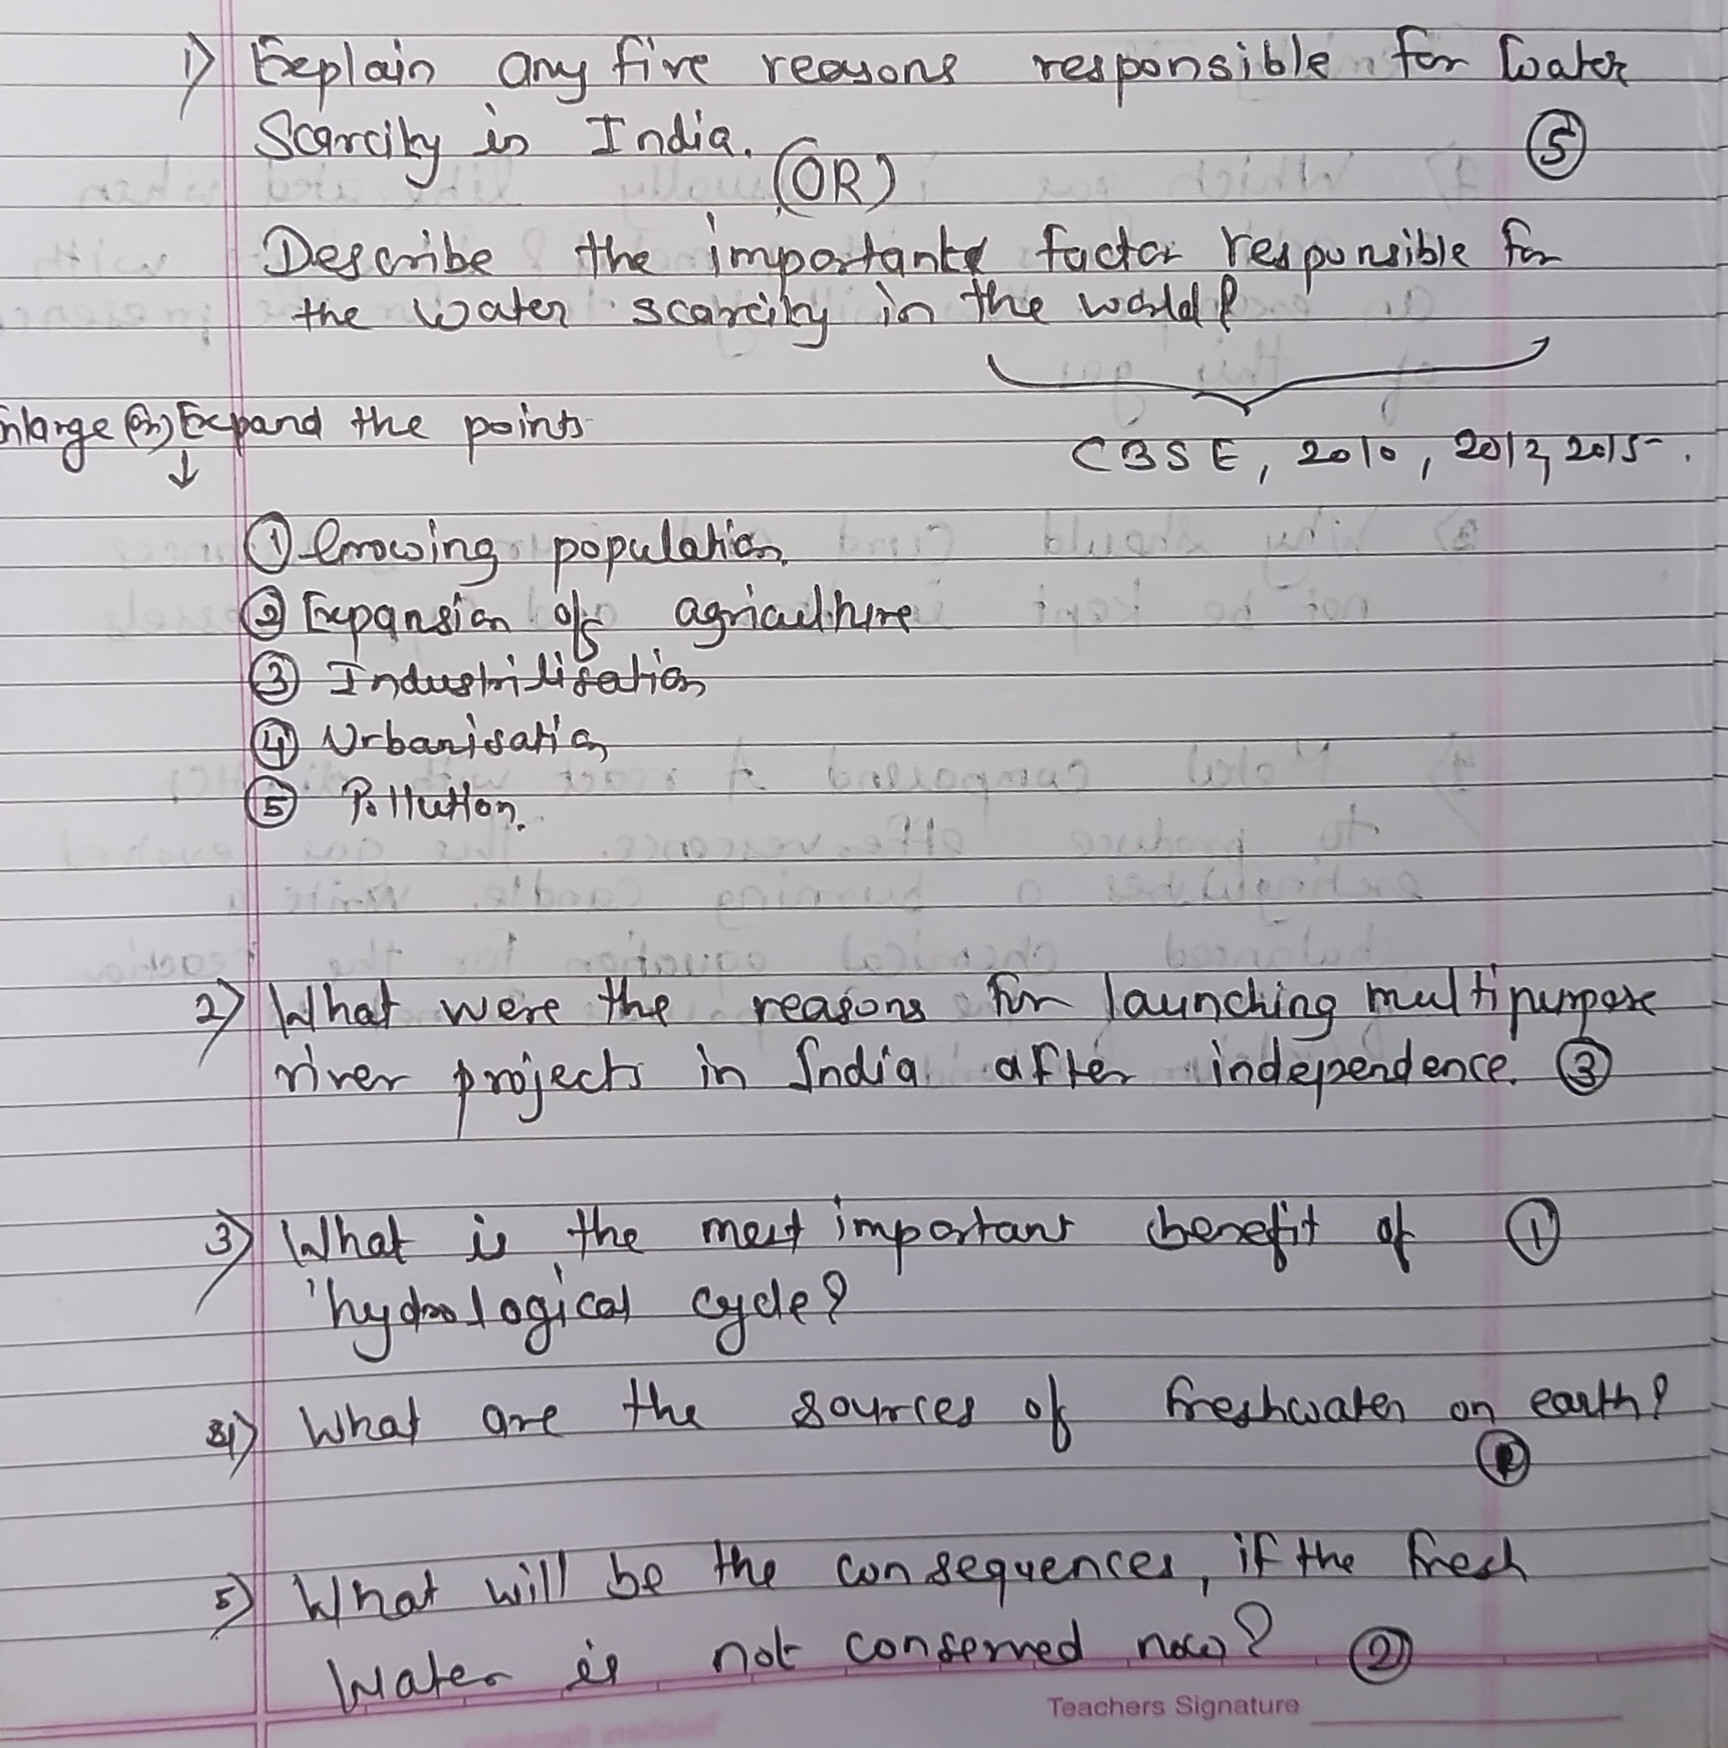 1) Explain any five reasons responsible for Water
Scarcity in India. ⑤
(OR)
Describe the important factor responsible for
the water scarcity in the world?
nlarge (or) Expand the points
↓
CBSE, 2010, 2012, 2015.
① Growing population.
② Expansion of agriculture
③ Industrilisation
④ Urbanisation
⑤ Pollution.
2) What were the reasons for launching multipurpose
river projects in India after independence. ③
3) What is the most important benefit of ①
'hydrological cycle?
4) What are the sources of freshwater on earth?
5) What will be the consequences, if the fresh
Water is not conserved now? ②
Teachers Signature